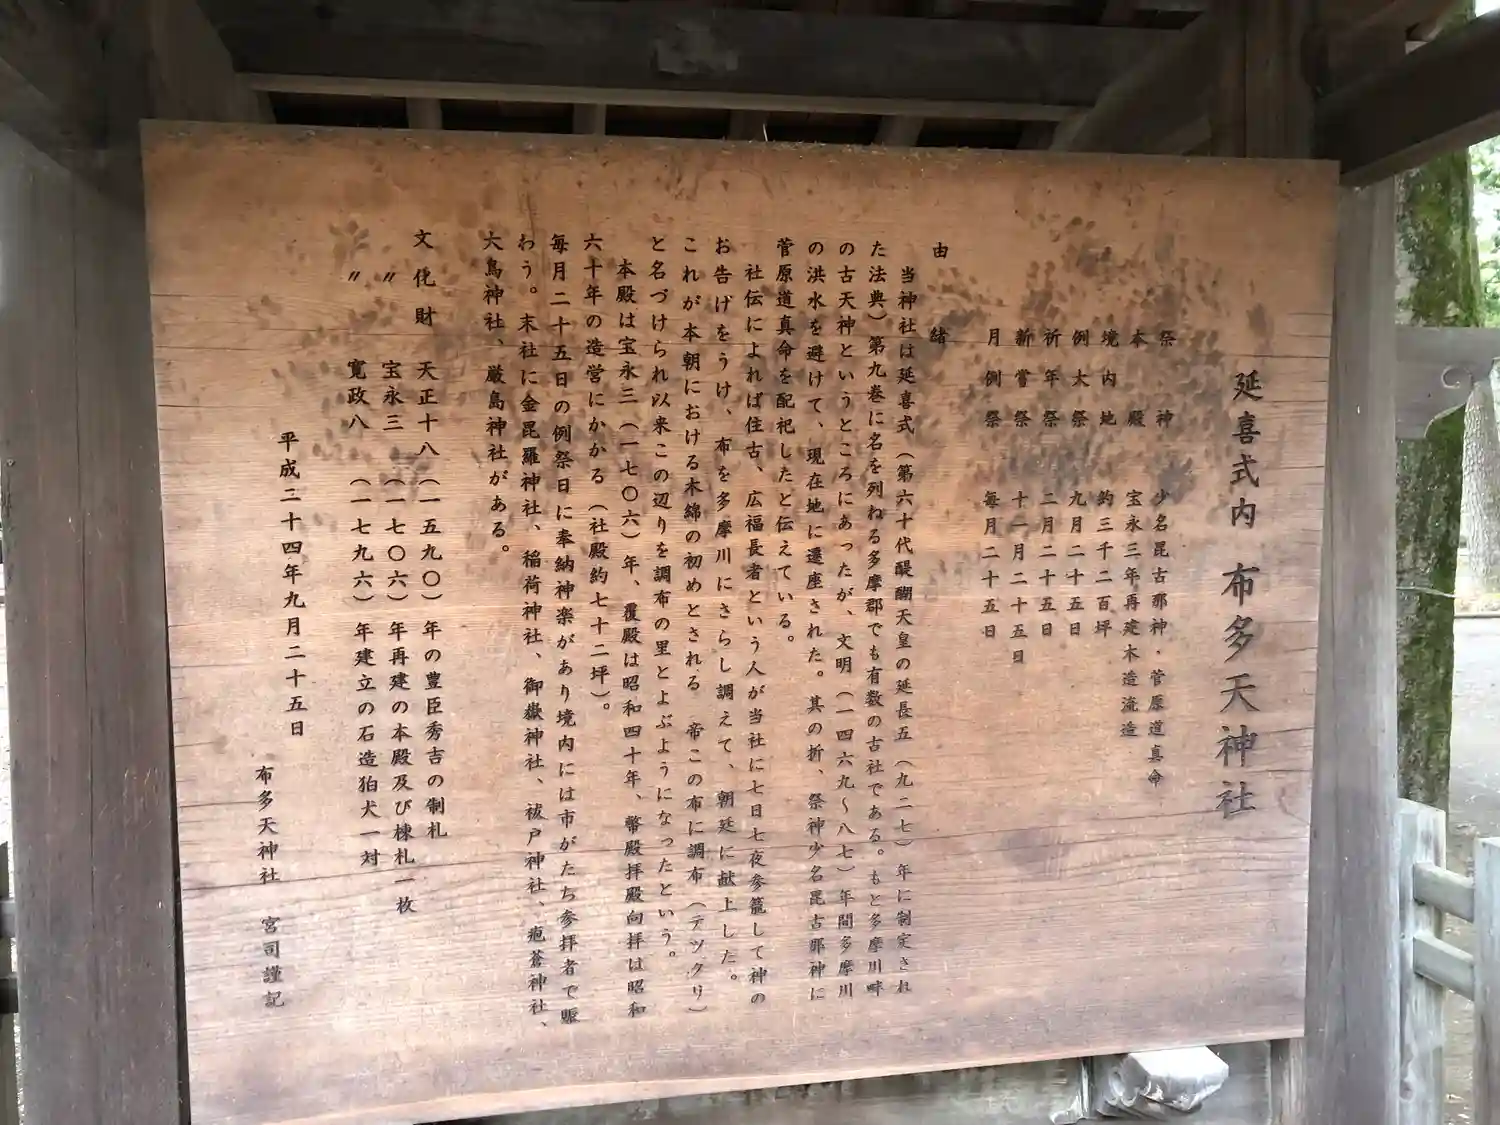 延喜式内 布多天神社
祭神 少名毘古那神・菅原道真命
本殿 宝永三年再建木造流造
境内地 約三千二百坪
例大祭 九月二十五日
祈年祭 二月二十五日
新嘗祭 十一月二十五日
月例祭 毎月二十五日
由緒
当神社は延喜式（第六十代醍醐天皇の延長五（九二七）年に制定され
た法典）第九巻に名を列ねる多摩郡でも有数の古社である。もと多摩川畔
の古天神というところにあったが、文明（一四六九〜八七）年間多摩川
の洪水を避けて、現在地に遷座された。其の折、祭神少名毘古那神に
菅原道真命を配祀したと伝えている。
社伝によれば往古、広福長者という人が当社に七日七夜参籠して神の
お告げをうけ、布を多摩川にさらし調えて、朝廷に献上した。
これが本朝における木綿の初めとされる 帝この布に調布（テツクリ）
と名づけられ以来この辺りを調布の里とよぶようになったという。
本殿は宝永三（一七〇六）年、覆殿は昭和四十年、幣殿拝殿向拝は昭和
六十年の造営にかかる（社殿約七十二坪）。
毎月二十五日の例祭日に奉納神楽があり境内には市がたち参拝者で賑
わう。末社に金毘羅神社、稲荷神社、御嶽神社、祓戸神社、疱蒼神社、
大鳥神社、厳島神社がある。
文化財 天正十八（一五九〇）年の豊臣秀吉の制札
〃 宝永三（一七〇六）年再建の本殿及び棟札一枚
〃 寛政八（一七九六）年建立の石造狛犬一対
平成二十四年九月二十五日
布多天神社 宮司謹記